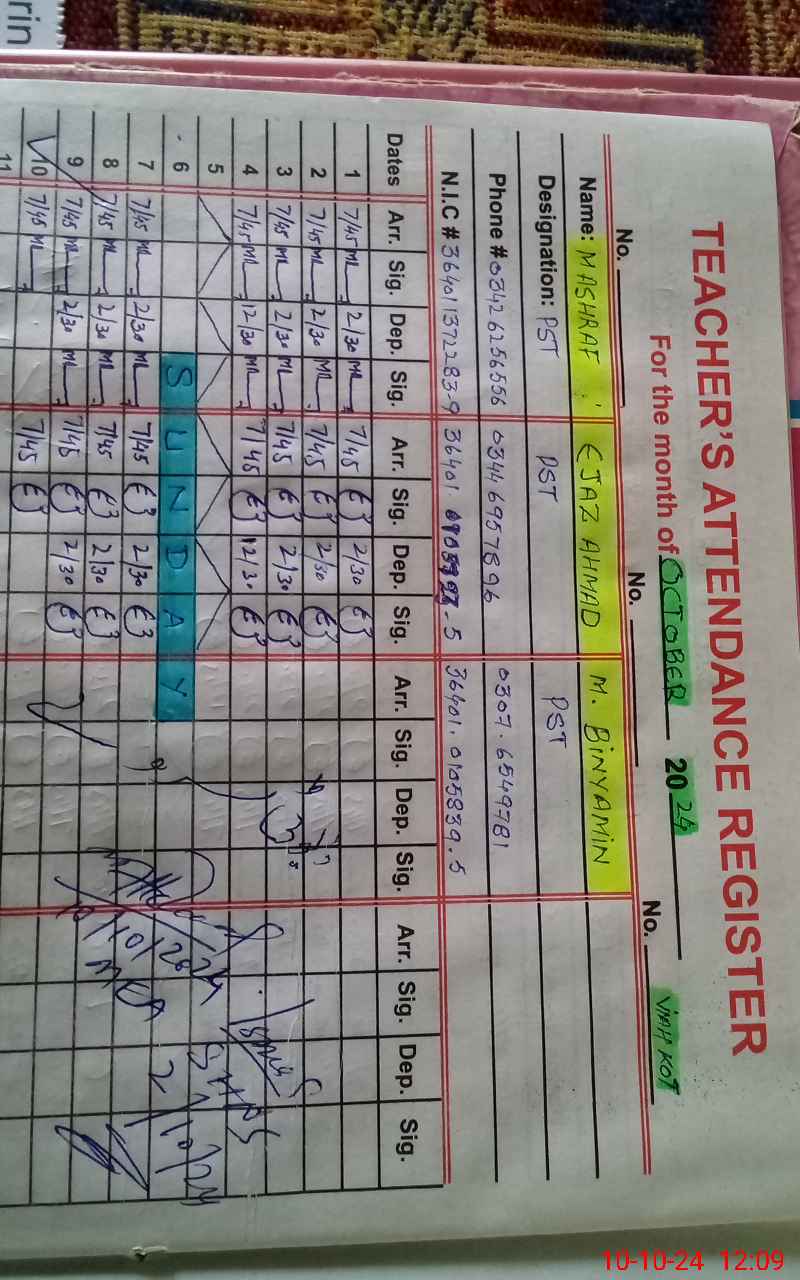 rin
TEACHER'S ATTENDANCE REGISTER
For the month of OCTOBER 2024 VIAH KOT
No. No. No.
Name: M ASHRAF EJAZ AHMAD M. BINYAMIN
Designation: PST PST PST
Phone # 03426256556 03446957896 0307.6549781
N.I.C # 364011372283-9 36401. -5 36401.0105839.5
Dates Arr. Sig. Dep. Sig. Arr. Sig. Dep. Sig. Arr. Sig. Dep. Sig. Arr. Sig. Dep. Sig.
1 7/45 2/30 7/45 2/30
2 7/45 2/30 7/45 2/30
3 7/45 2/30 7/45 2/30
4 7/45 12/30 7/45 12/30
5
6 SUNDAY
7 7/45 2/30 7/45 2/30
8 7/45 2/30 7/45 2/30
9 7/45 2/30 7/45 2/30
10 7/45 7/45
11
MEA
2/10/24
10-10-24 12:09